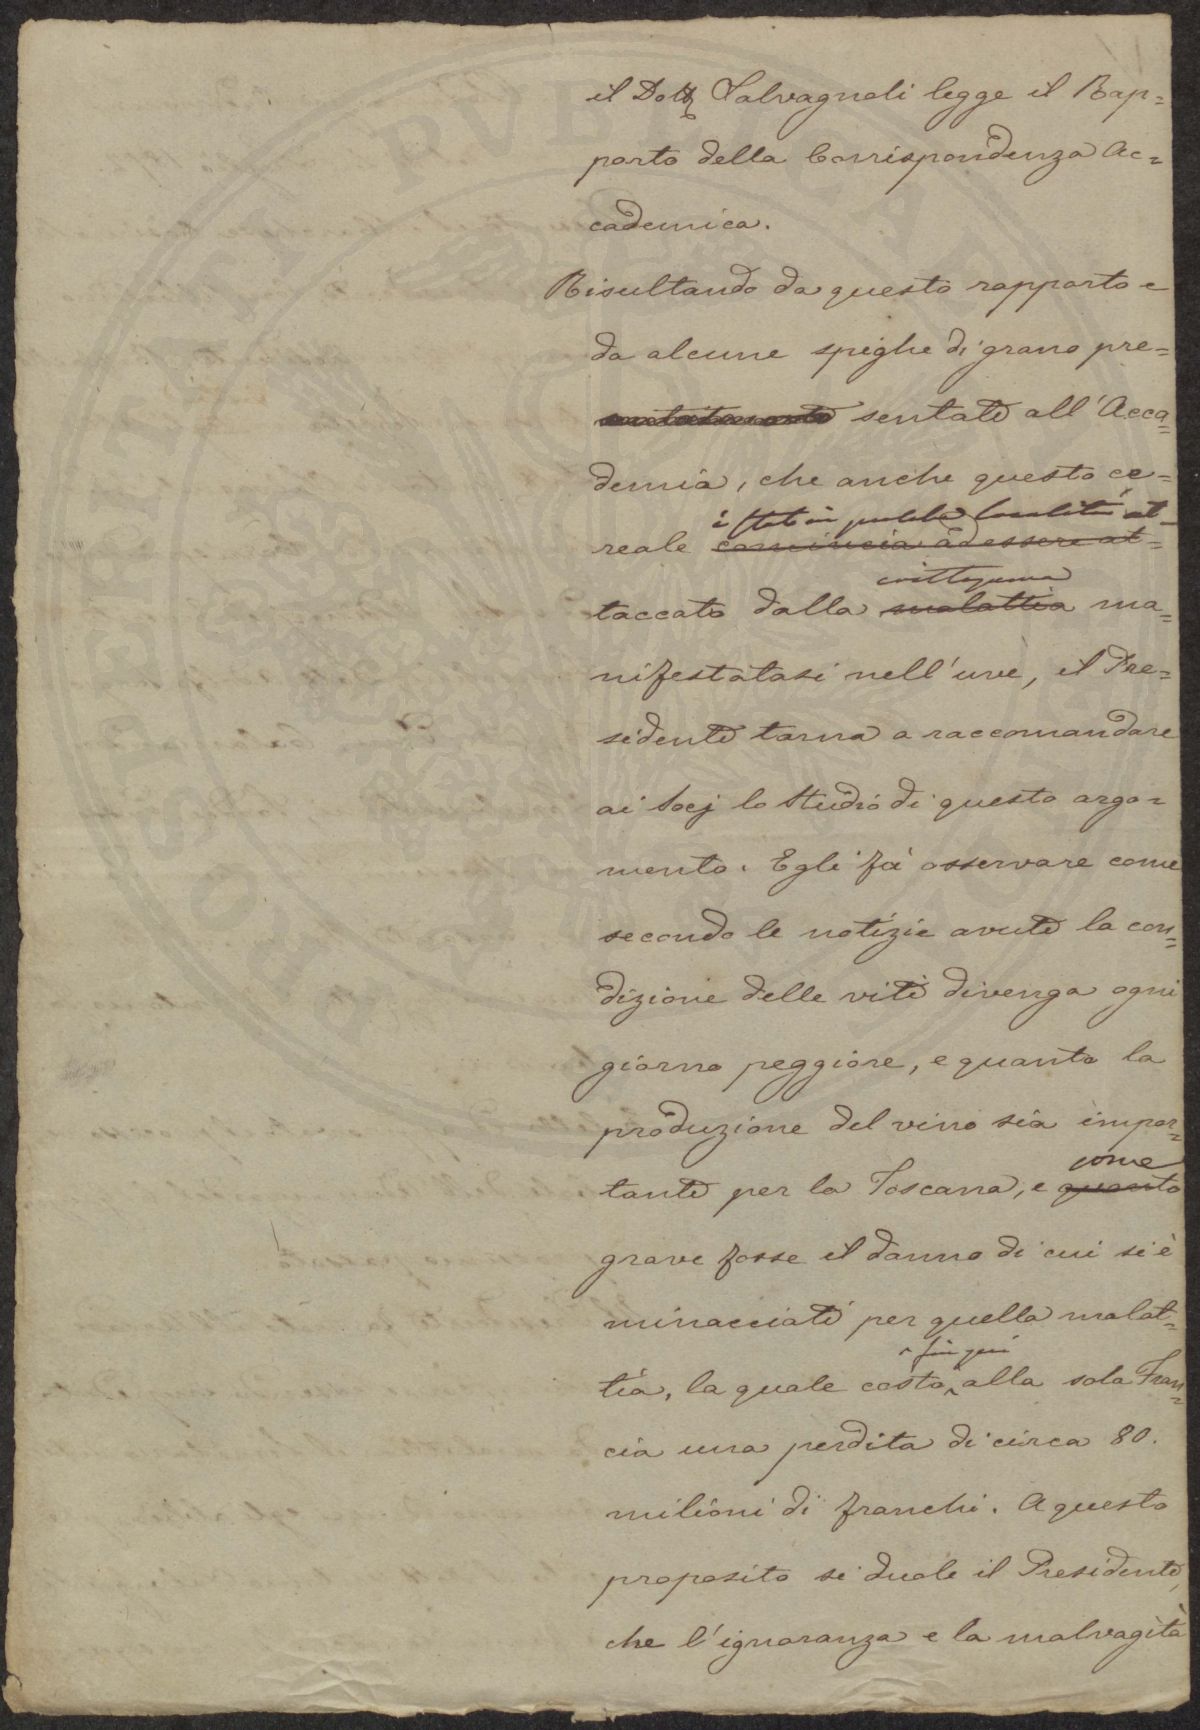 il Dott Salvagnoli legge il Rap=
porto della Corrispondenza Ac=
cademica.
Risultando da questo rapporto e
da alcune spighe di grano pre=
sentate all'Acca=
demia, che anche questo ce=
è stato in località at=
reale comincia ad essere at=
crittogama
taccato dalla malattia ma=
nifestatasi nell'uve, il Pre=
sidente torna a raccomandare
ai Socj lo studio di questo argo=
mento. Egli fà osservare come
secondo le notizie avute la con=
dizione delle viti divenga ogni
giorno peggiore, e quanto la
produzione del vino sia impor=
come
tante per la Toscana, e quanto
grave fosse il danno di cui si è
minacciati per quella malat=
fin qui
tia, la quale costò alla sola Fran=
cia una perdita di circa 80.
milioni di franchi. A questo
proposito si duole il Presidente,
che l'ignoranza e la malvagità